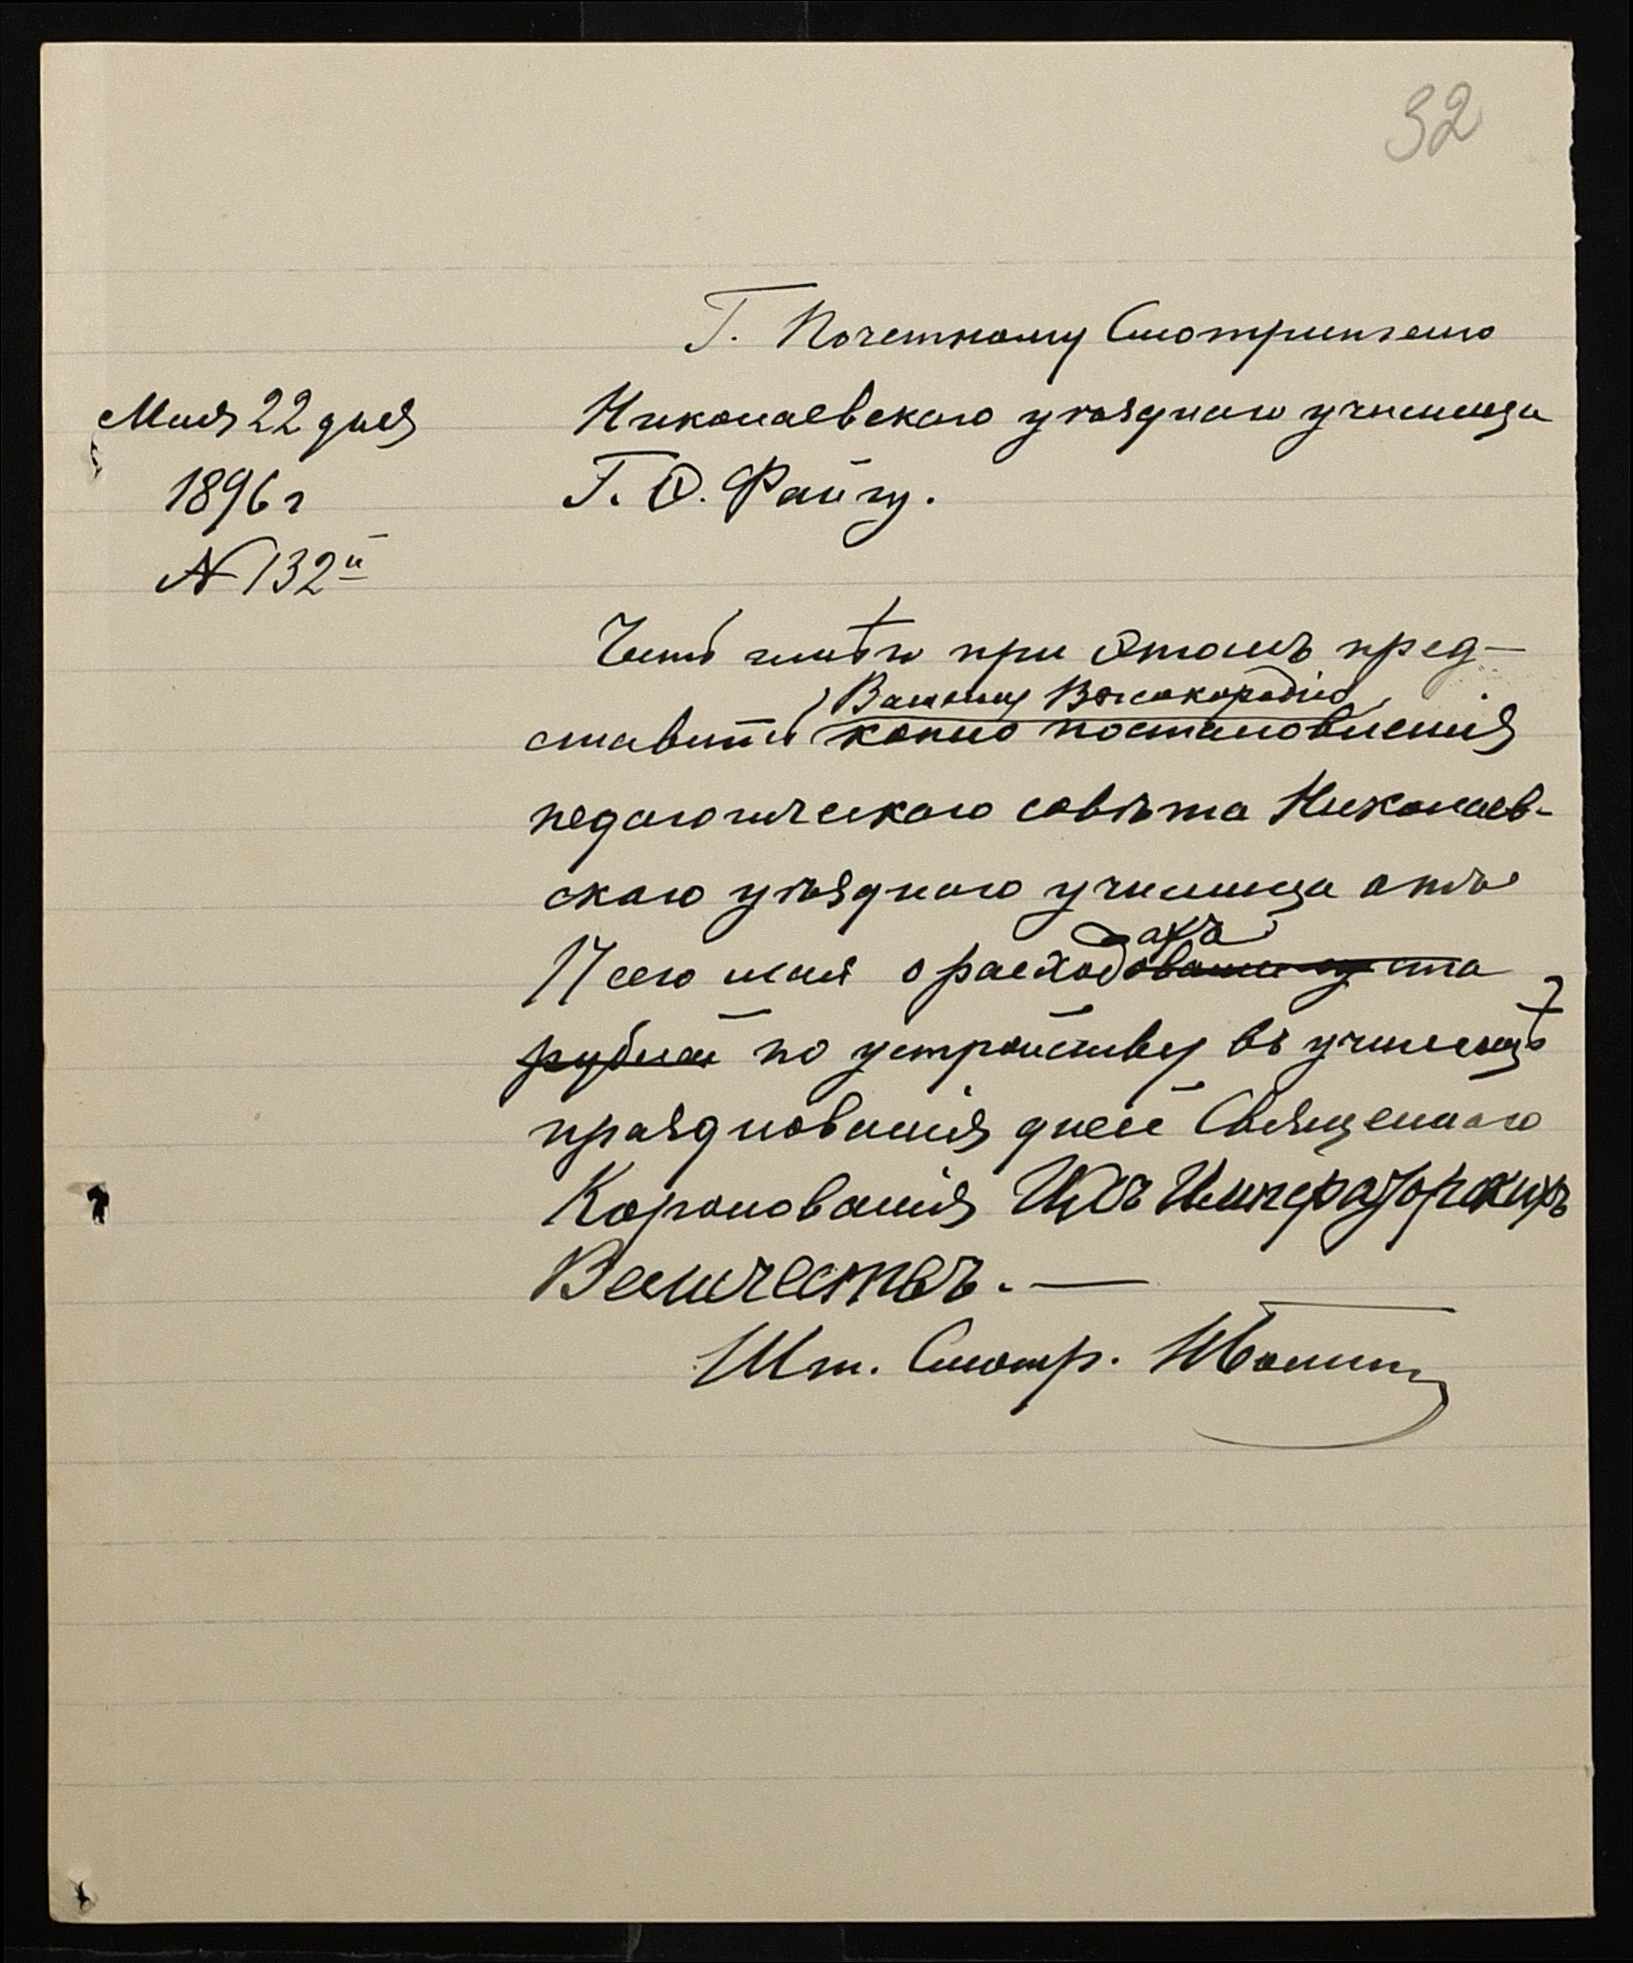 32
Г. Почетному Смотрителю
Николаевского уѣзднаго училища
Г. Ѳ. Файгу.
Мая 22 дня
1896 г
№ 132й
Честь имѣю при этомъ пред-
Вашему Высокородію
ставить копию постановленія
педагогическаго совѣта Николаев-
скаго уѣзднаго училища отъ
ахъ
17 сего мая о расходовании ста
рублей по устройству въ училищѣ
празднованія дней Священнаго
Коронованія Ихъ Императорскихъ
Величествъ. —
Шт. Смотр.